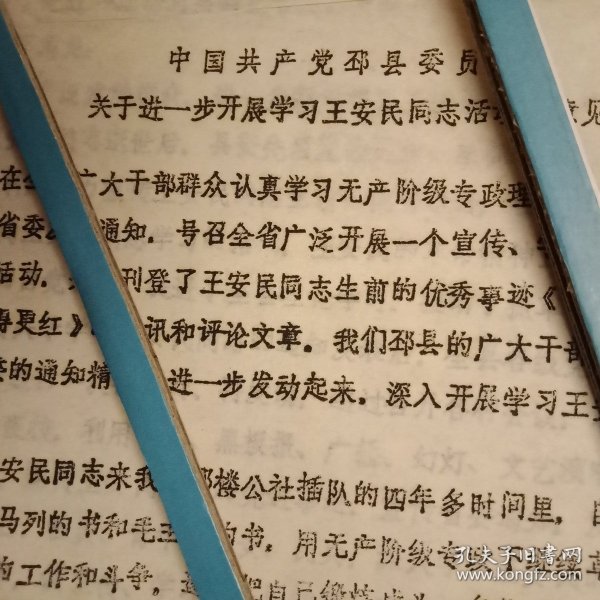 中国共产党邳县委员
关于进一步开展学习王安民同志活 意见
在 广大干部群众认真学习无产阶级专政理
省委 通知，号召全省广泛开展一个宣传、
活动。 刊登了王安民同志生前的优秀事迹《
得更红》 讯和评论文章。我们邳县的广大干部
的通知精 进一步发动起来，深入开展学习王
安民同志来我 楼公社插队的四年多时间里，
马列的书和毛主 的书，用无产阶级专政
工作和斗争， 把自己
孔夫子旧书网
www.kongfz.com